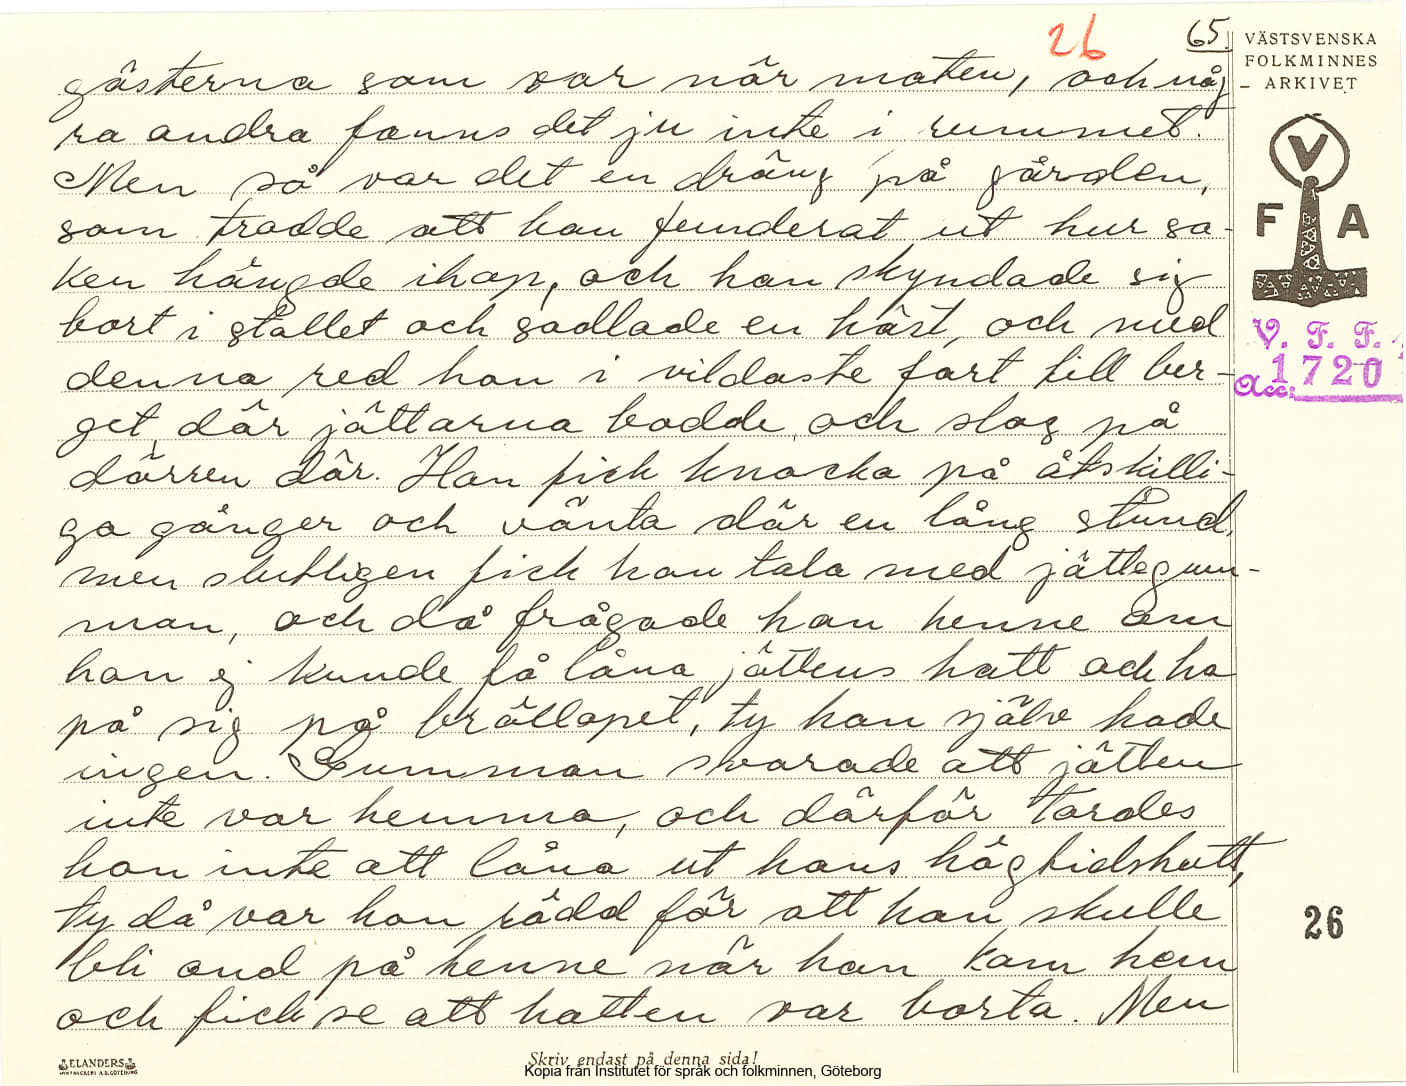 26
65.
VÄSTSVENSKA
FOLKMINNES
– ARKIVET
V
F A
V. F. F.
Acc: 1720
gästerna som var när maten, och någ
ra andra fanns det ju inte i rummet.
Men så var det en dräng på gården,
som trodde att han funderat ut hur sa-
ken hängde ihop, och han skyndade sig
bort i stallet och sadlade en häst, och med
denna red han i vildaste fart till ber-
get, där jättarna bodde, och slog på
dörren där. Han fick knacka på åtskilli-
ga gånger och vänta där en lång stund,
men slutligen fick han tala med jättegum-
man, och då frågade han henne om
han ej kunde få låna jättens hatt och ha
på sig på bröllopet, ty han själv hade
ingen. Gumman svarade att jätten
inte var hemma, och därför tordes
hon inte att låna ut hans högtidshatt,
ty då var hon rädd för att han skulle
bli ond på henne när han kom hem
och fick se att hatten var borta. Men
26
ELANDERS
BOKTRYCKERI A.B. GÖTEBORG
Skriv endast på denna sida!
Kopia från Institutet för språk och folkminnen, Göteborg